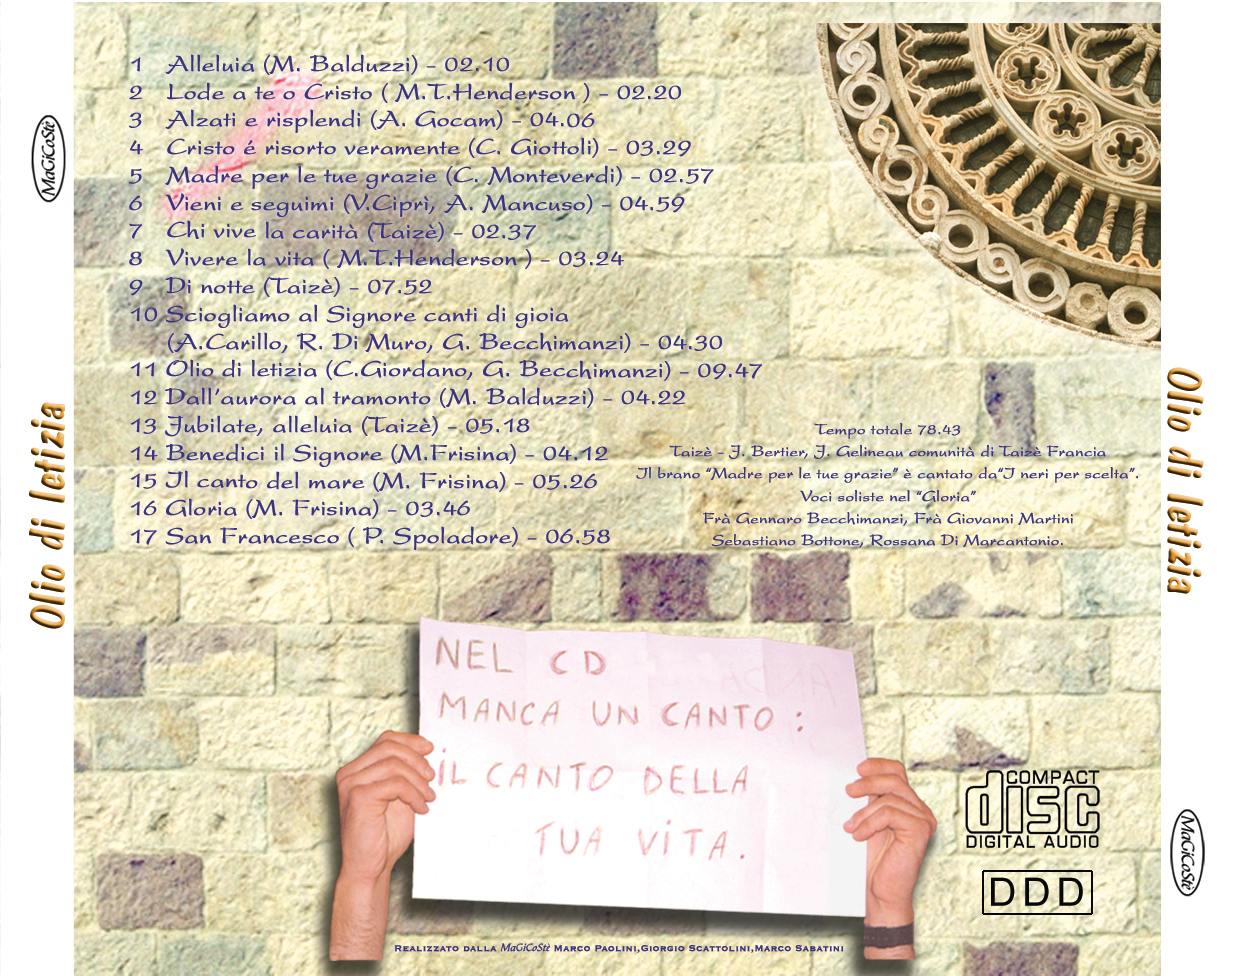 1 Alleluia (M. Balduzzi) - 02.10
2 Lode a te o Cristo ( M.T.Henderson ) - 02.20
3 Alzati e risplendi (A. Gocam) - 04.06
4 Cristo é risorto veramente (C. Giottoli) - 03.29
5 Madre per le tue grazie (C. Monteverdi) - 02.57
6 Vieni e seguimi (V.Ciprì, A. Mancuso) - 04.59
7 Chi vive la carità (Taizè) - 02.37
8 Vivere la vita ( M.T.Henderson ) - 03.24
9 Di notte (Taizè) - 07.52
10 Sciogliamo al Signore canti di gioia
(A.Carillo, R. Di Muro, G. Becchimanzi) - 04.30
11 Olio di letizia (C.Giordano, G. Becchimanzi) - 09.47
12 Dall'aurora al tramonto (M. Balduzzi) - 04.22
13 Jubilate, alleluia (Taizè) - 05.18
14 Benedici il Signore (M.Frisina) - 04.12
15 Il canto del mare (M. Frisina) - 05.26
16 Gloria (M. Frisina) - 03.46
17 San Francesco ( P. Spoladore) - 06.58
Tempo totale 78.43
Taizè - J. Bertier, J. Gelineau comunità di Taizè Francia
Il brano "Madre per le tue grazie" è cantato da"I neri per scelta".
Voci soliste nel "Gloria"
Frà Gennaro Becchimanzi, Frà Giovanni Martini
Sebastiano Bottone, Rossana Di Marcantonio.
MaGiCoStè
Olio di letizia
Olio di letizia
MaGiCoStè
NEL CD
MANCA UN CANTO :
iL CANTO DELLA
TUA ViTA.
COMPACT
disc
DIGITAL AUDIO
DDD
Realizzato dalla MaGiCoStè Marco Paolini,Giorgio Scattolini,Marco Sabatini